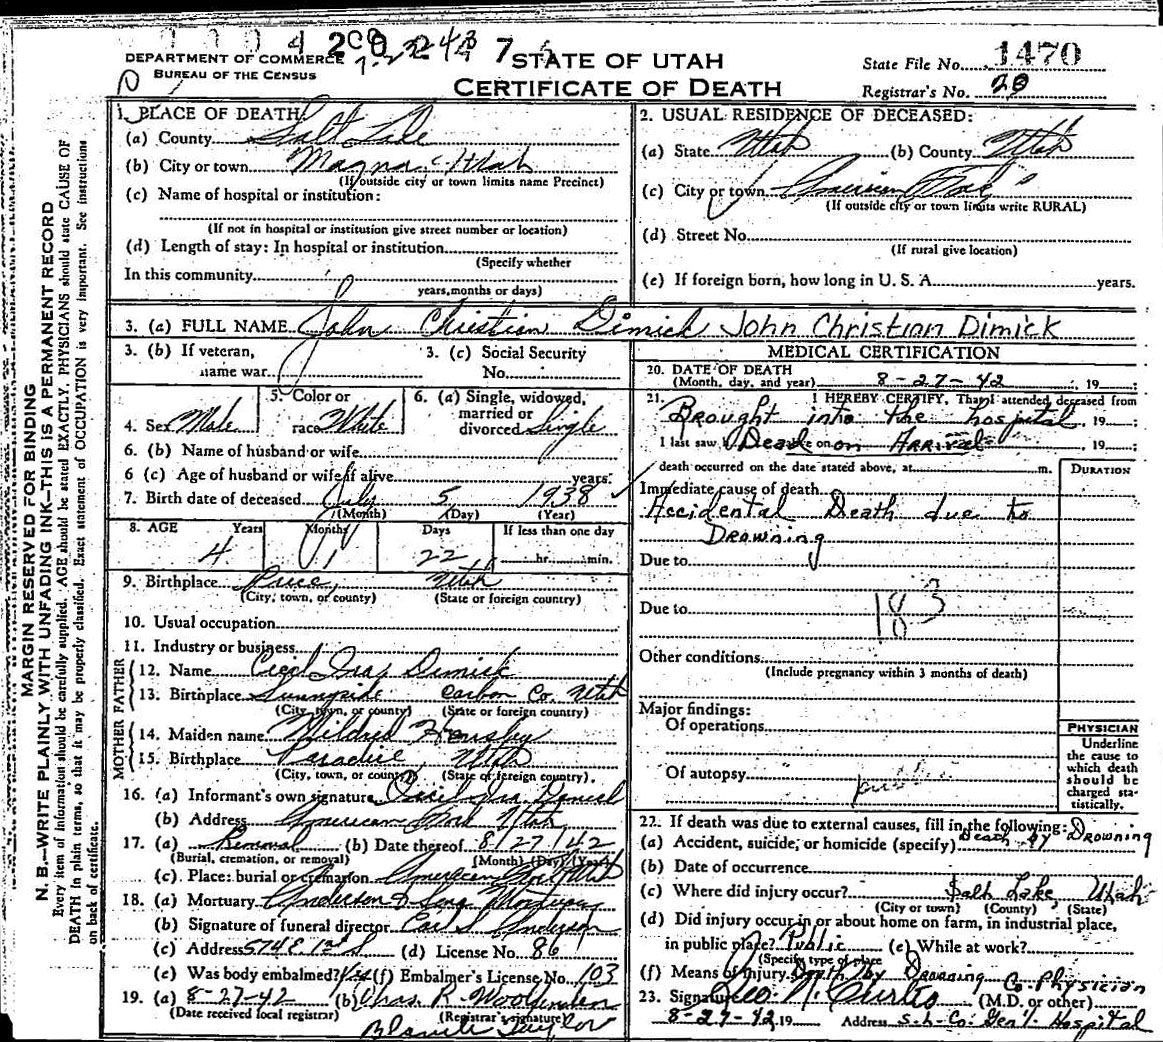 DEPARTMENT OF COMMERCE
BUREAU OF THE CENSUS
STATE OF UTAH
CERTIFICATE OF DEATH
State File No. 1470
Registrar's No. 20
MARGIN RESERVED FOR BINDING
N. B.—WRITE PLAINLY WITH UNFADING INK—THIS IS A PERMANENT RECORD
Every item of information should be carefully supplied. AGE should be stated EXACTLY. PHYSICIANS should state CAUSE OF
DEATH in plain terms, so that it may be properly classified. Exact statement of OCCUPATION is very important. See instructions
on back of certificate.
1. PLACE OF DEATH
(a) County Salt Lake
(b) City or town Magna Utah
(If outside city or town limits name Precinct)
(c) Name of hospital or institution:
(If not in hospital or institution give street number or location)
(d) Length of stay: In hospital or institution
(Specify whether
In this community
years, months or days)
2. USUAL RESIDENCE OF DECEASED:
(a) State Utah (b) County Utah
(c) City or town American Fork
(If outside city or town limits write RURAL)
(d) Street No.
(If rural give location)
(e) If foreign born, how long in U. S. A. years.
3. (a) FULL NAME John Christian Dimick John Christian Dimick
3. (b) If veteran,
name war
3. (c) Social Security
No.
4. Sex Male
5. Color or
race White
6. (a) Single, widowed,
married or
divorced Single
6. (b) Name of husband or wife
6 (c) Age of husband or wife if alive years.
7. Birth date of deceased July 5 1938
(Month) (Day) (Year)
8. AGE Years Months Days If less than one day
4 1 22 hr. min.
9. Birthplace Price, Utah
(City, town, or county) (State or foreign country)
10. Usual occupation
11. Industry or business
FATHER
12. Name Cecil Ira Dimick
13. Birthplace Sunnyside Carbon Co. Utah
(City, town, or county) (State or foreign country)
MOTHER
14. Maiden name Mildred
15. Birthplace Paradise, Utah
(City, town, or county) (State or foreign country)
16. (a) Informant's own signature Cecil Ira Dimick
(b) Address American Fork Utah
17. (a) Removal (b) Date thereof 8/27/42
(Burial, cremation, or removal) (Month) (Day) (Year)
(c) Place: burial or cremation American Fork Utah
18. (a) Mortuary Anderson & Sons Mortuary
(b) Signature of funeral director Earl S Anderson
(c) Address 574 E. 1st S (d) License No. 86
(e) Was body embalmed? Yes (f) Embalmer's License No. 103
19. (a) 8-27-42 (b) Chas. R. Woolfenden
(Date received local registrar) (Registrar's signature)
Blanche Taylor
MEDICAL CERTIFICATION
20. DATE OF DEATH
(Month, day, and year) 8-27-42, 19
21. I HEREBY CERTIFY, That I attended deceased from
Brought into the hospital, 19
I last saw Dead on Arrival 19
death occurred on the date stated above, at m.
DURATION
Immediate cause of death
Accidental Death due to
Drowning
Due to
Due to
183
Other conditions
(Include pregnancy within 3 months of death)
Major findings:
Of operations
Of autopsy
public
PHYSICIAN
Underline
the cause to
which death
should be
charged sta-
tistically.
22. If death was due to external causes, fill in the following:
(a) Accident, suicide, or homicide (specify) Death by Drowning
(b) Date of occurrence
(c) Where did injury occur? Salt Lake, Utah
(City or town) (County) (State)
(d) Did injury occur in or about home on farm, in industrial place,
in public place? Public (e) While at work?
(Specify type of place
(f) Means of Injury Death by Drowning Co. Physician
23. Signature Geo. N. Curtis (M.D. or other)
8-27-42 19 Address S.L. Co. Gen'l. Hospital